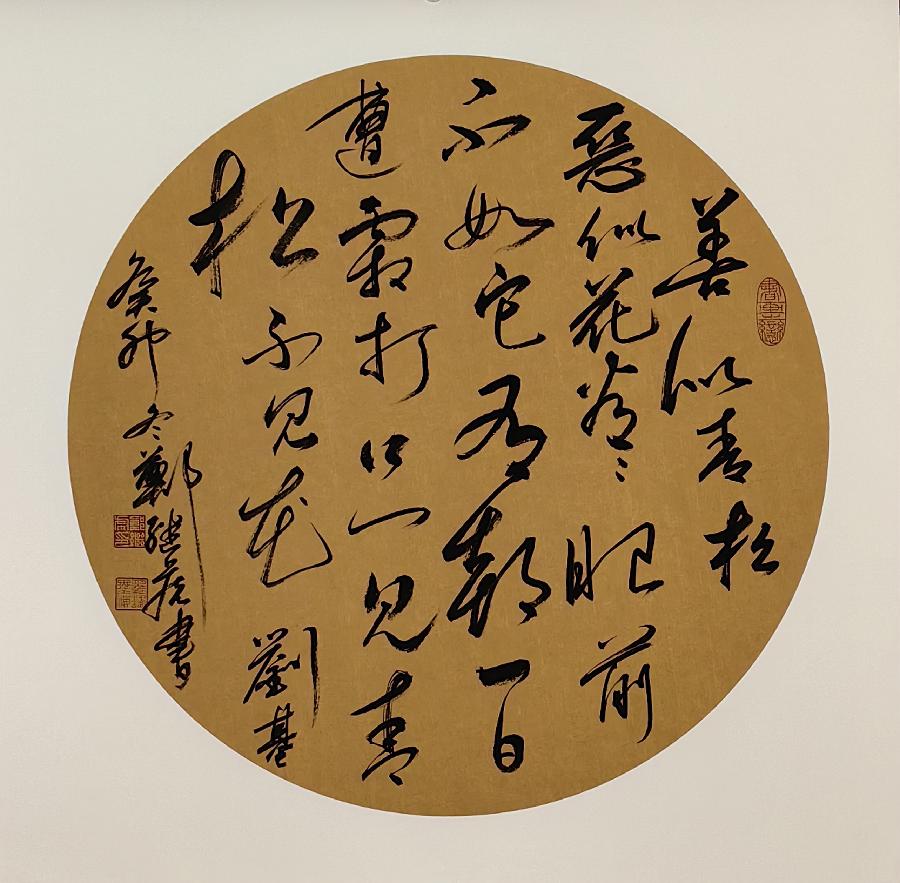 善似青松
惡似花看〻眼前
不如它有朝一日
遭霜打只見青
松不見花 劉基
癸卯冬鄭继書